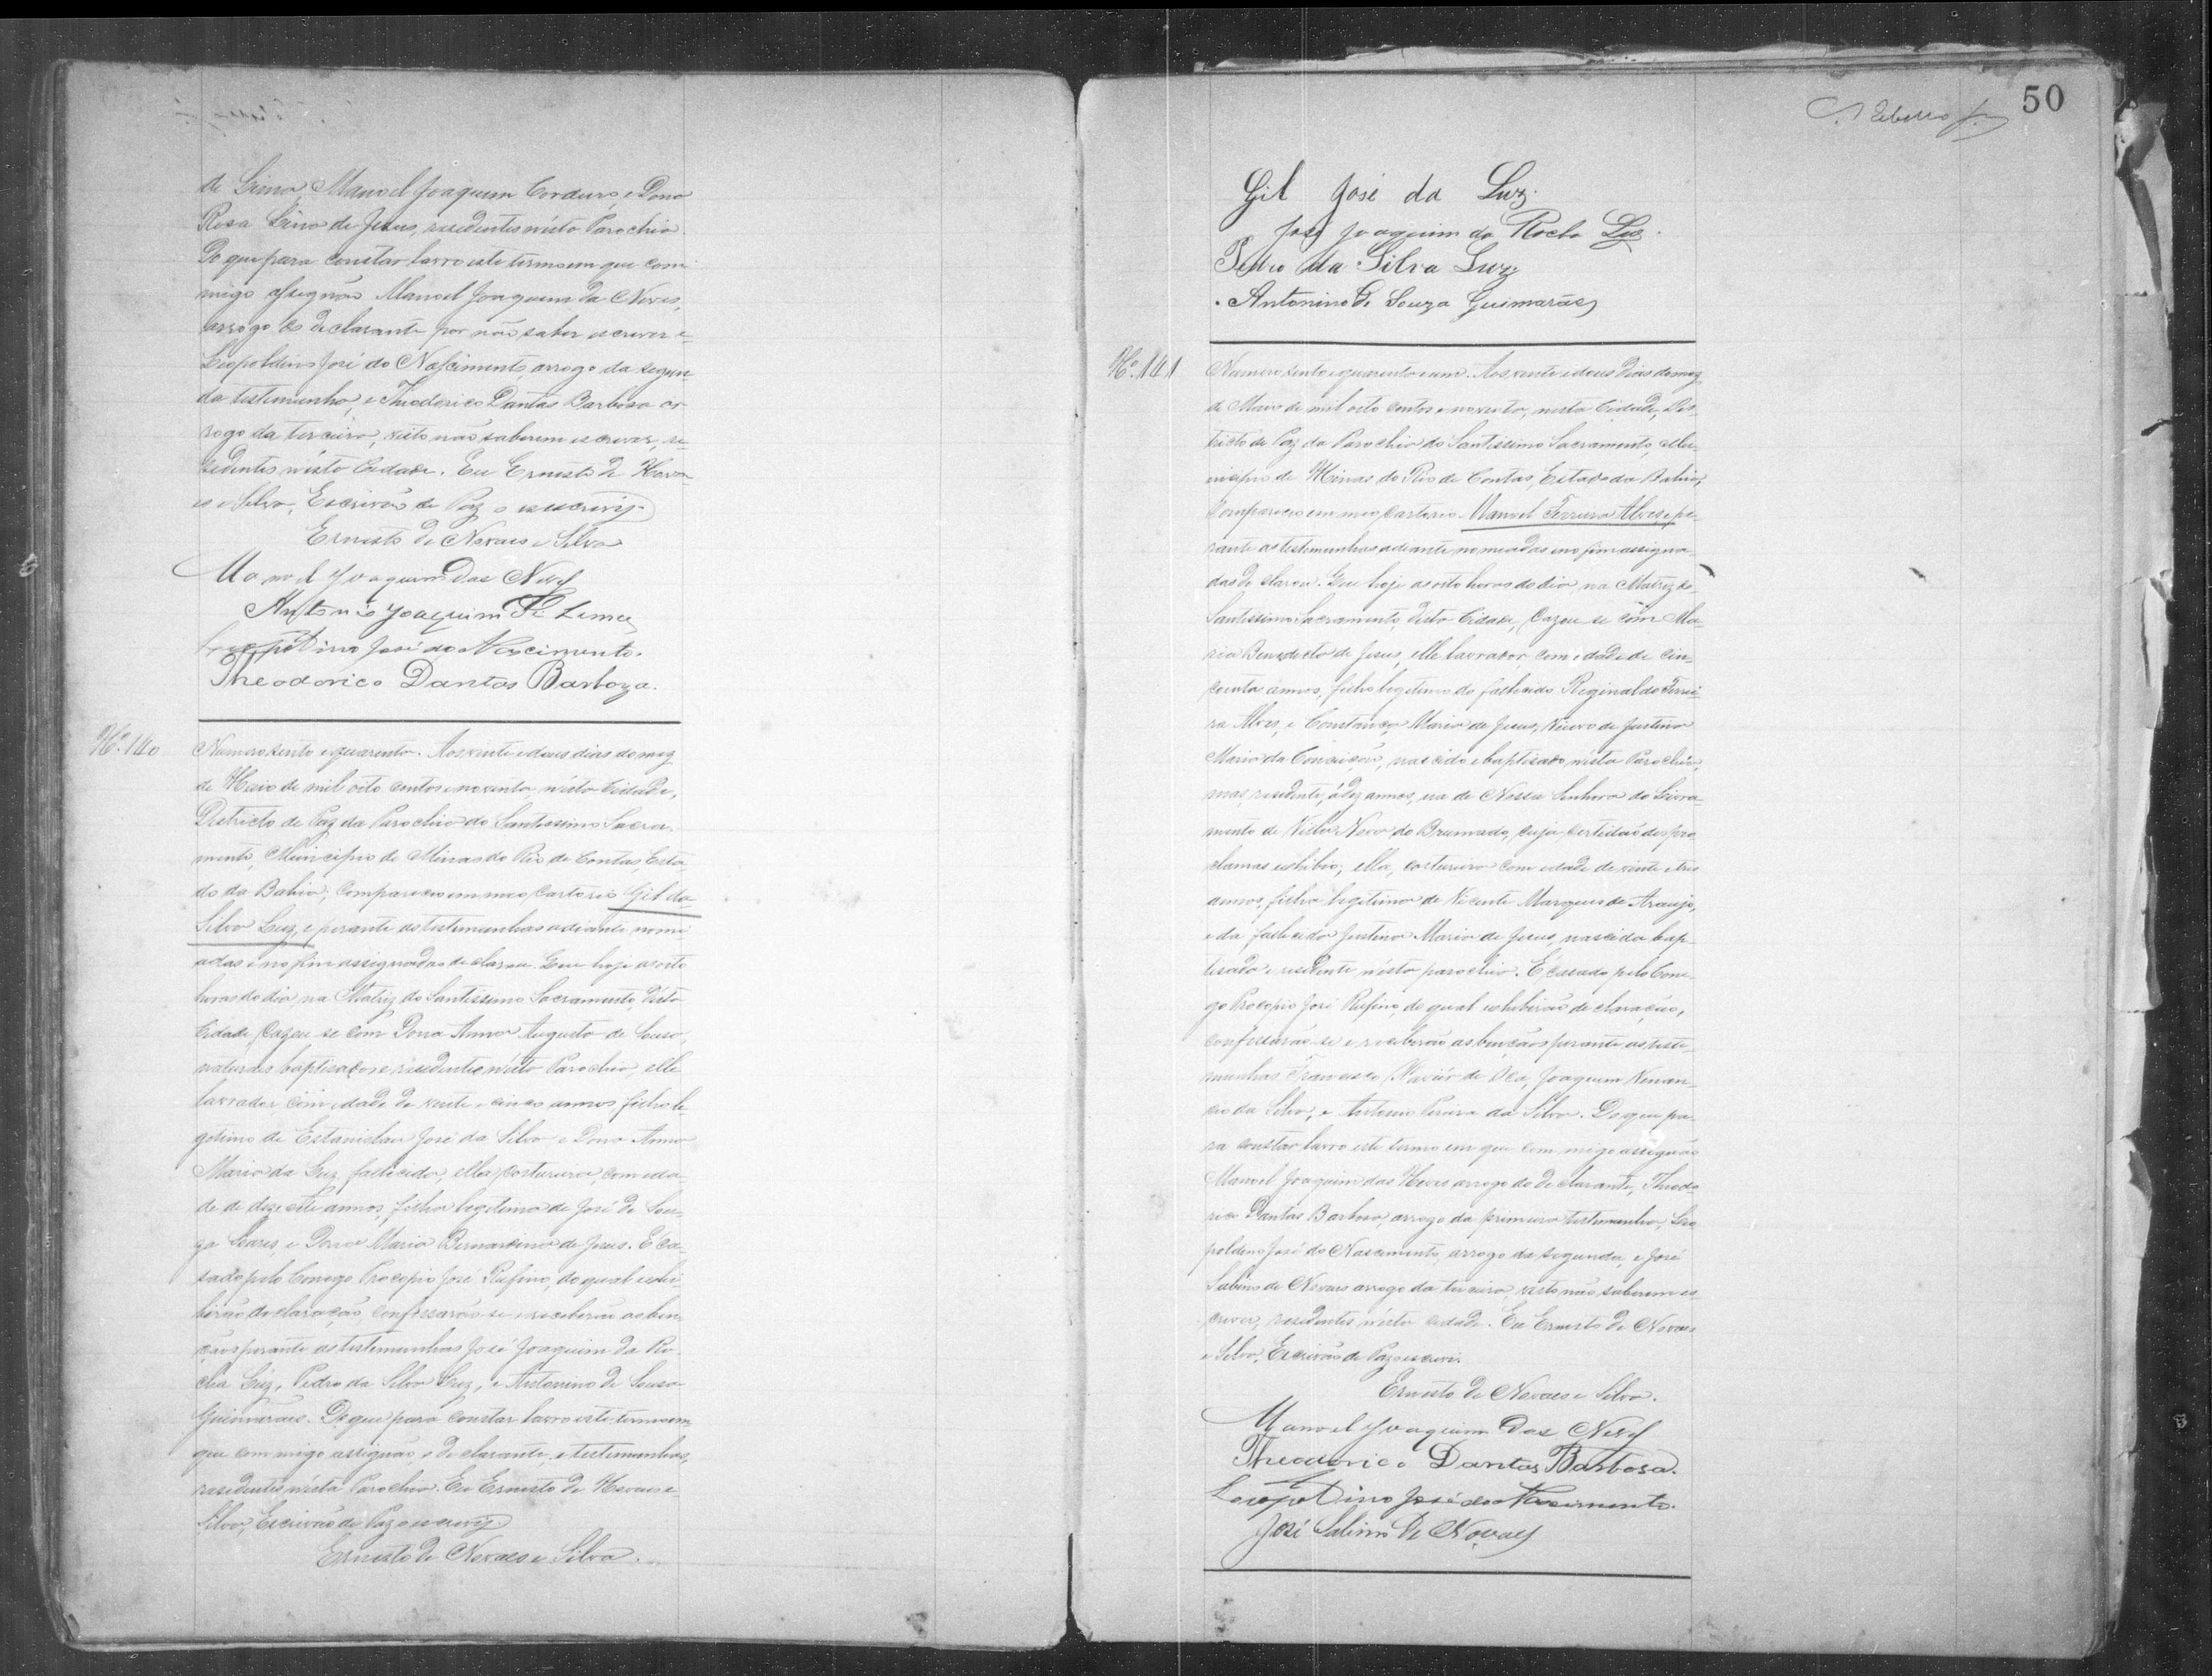 de Lima Manoel Joaquim Corduro, e Dona
Rosa Lina de Jesus, residentes n'esta Parochia.
Do que para constar lavro este termo em que com
migo assignão Manoel Joaquim da Neves,
arrogo do declarante por não saber escrever e
Leopoldino José do Nascimento, arrogo da segun-
da testemunha, e Theodorico Dantas Barbosa ar-
rogo da terceira, visto não saberem escrever, re-
sidentes n'esta Cidade. Eu Ernesto de Nova-
es e Silva, Escrivão de Paz o escrevy.
Ernesto de Novaes e Silva
Manoel Joaquim Das Neves
Antonio Joaquim de Lima
Leopoldino José do Nascimento.
Theodorico Dantas Barboza.
Nº 140
Numero cento e quarenta. Aos vinte e dous dias do mez
de Maio de mil oito centos e noventa, n'esta Cidade,
Districto de Paz da Parochia do Santissimo Sacra-
mento, Municipio de Minas do Rio de Contas, Esta-
do da Bahia, compareceo em meo Cartorio Gil da
Silva Luz, e perante as testemunhas adiante nome-
adas e no fim assignadas declarou. Que hoje as oito
horas do dia, na Matriz do Santissimo Sacramento, d'esta
Cidade, Cazou-se com Dona Anna Augusta de Sousa,
naturaes baptisados e residentes n'esta Parochia, elle
lavrador, com idade de vinte e cinco annos, filho le-
gitimo de Estanislau José da Silva e Dona Anna
Maria da Luz, fallecida, ella costureira, com ida-
de de desesete annos, filha legitima de José de Sou-
za Soares, e Dona Maria Bernardina de Jesus. É ca-
sado pelo Conego Procopio José Rufino, do qual exhi-
birão declaração, confessarão-se e receberão as ben-
çãos perante as testemunhas José Joaquim da Ro-
cha Luz, Pedro da Silva Luz, e Antonino de Sousa
Guimarães. De que para constar lavro este termo em
que commigo assignão, o declarante, e testemunhas,
residentes n'esta Parochia. Eu Ernesto de Novaes e
Silva, Escrivão de Paz o escrevy.
Ernesto de Novaes e Silva.
50
Gil José da Luz.
José Joaquim da Rocha Luz.
Pedro da Silva Luz
Antonino de Souza Guimarães
Nº 141
Numero cento e quarenta e um. Aos vinte e dous dias do mez
de Maio de mil oito centos e noventa, nesta Cidade, Dis-
tricto de Paz da Parochia do Santissimo Sacramento, Mu-
nicipio de Minas do Rio de Contas, Estado da Bahia,
compareceo em meo Cartorio Manoel Ferreira Alves e pe-
rante as testemunhas adiante nomeadas e no fim assigna-
das declarou. Que hoje as oito horas do dia, na Matriz do
Santissimo Sacramento, d'esta Cidade, Cazou-se com Ma-
ria Benedicta de Jesus, elle lavrador com idade de cin-
coenta annos, filho legitimo do fallecido Reginaldo Ferrei-
ra Alves, e Constança Maria de Jesus, viuvo de Justina
Maria da Conceição, nascido e baptisado n'esta Parochia,
mas residente, á dez annos, na de Nossa Senhora do Livra-
mento de Villa Nova do Brumado, cuja certidão dos pro-
clamas exhibio; ella, costureira com idade de vinte e tres
annos, filha legitima de Vicente Marques de Araujo,
e da fallecida Justina Maria de Jesus, nascida bap-
tisada e residente n'esta parochia. É casado pelo Cone-
go Procopio José Rufino, do qual exhibirão declaração,
confessarão-se e receberão as bençãos perante as teste-
munhas Francisco Xavier de Sá, Joaquim Venan-
cio da Silva, e Antonio Pereira da Silva. De que pa-
ra constar lavro este termo em que commigo assignão
Manoel Joaquim das Neves arrogo do declarante, Theodo-
rico Dantas Barbosa, arrogo da primeira testemunha, Leo-
poldino José do Nascimento, arrogo da segunda, e José
Sabino de Novaes arrogo da terceira, visto não saberem es-
crever, residentes n'esta cidade. Eu Ernesto de Novaes
e Silva, Escrivão de Paz o escrevi.
Ernesto de Novaes e Silva.
Manoel Joaquim Das Neves
Theodorico Dantas Barbosa.
Leopoldino José do Nascimento.
José Sabino de Novaes